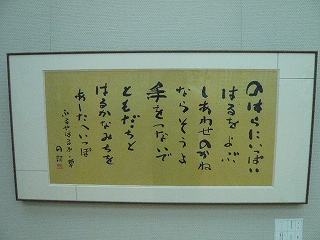 のはらにいっぱい
はるをよぶ
しあわせのかね
ならそうよ
手をつないで
ともだちと
はるかなみちを
あしたへいっぽ